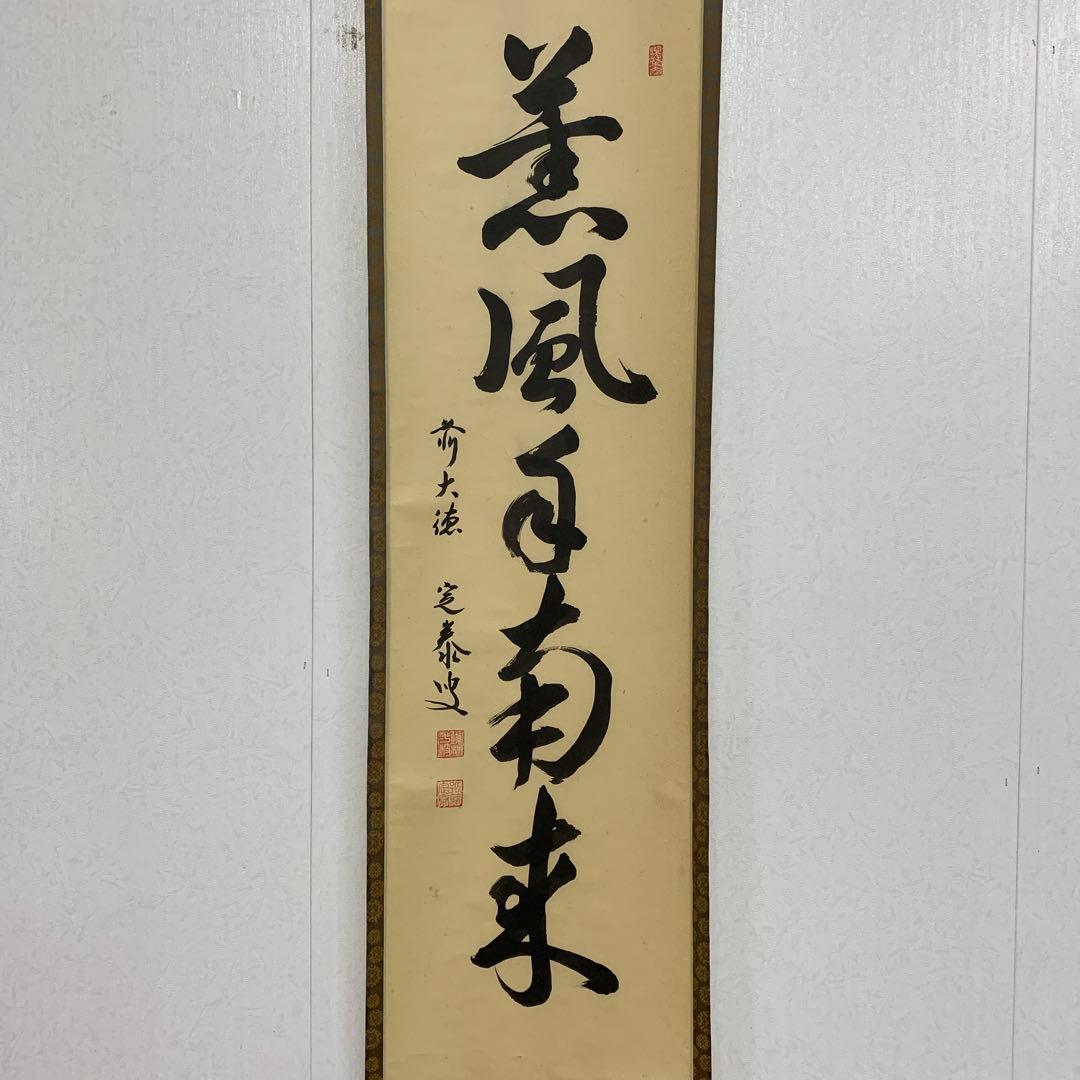 薫風自南来
前大徳 寛泰叟